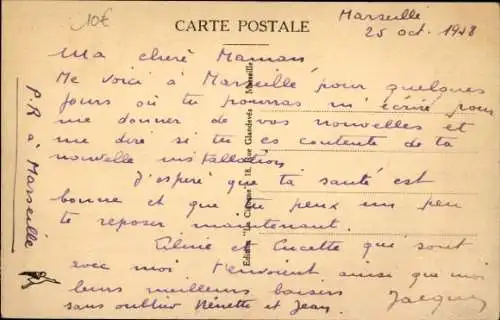 10€
CARTE POSTALE
Marseille
25 oct. 1948
Ma cherè Maman
Me voici à Marseillé pour quelques
jours où tu pourras m'écrire pour
me donner de vos nouvelles et
me dire si tu es contente de ta
nouvelle installation
J'espère que ta santé est
bonne et que tu peux un peu
te reposer maintenant.
et Lucette qui sont
avec moi t'envoient ainsi que moi
leurs meilleurs baisers
sans oublier Nénette et Jean.
Jacques
P.R à Marseille
Edition "La Cigogne" 18, Rue Glandevès, Marseille